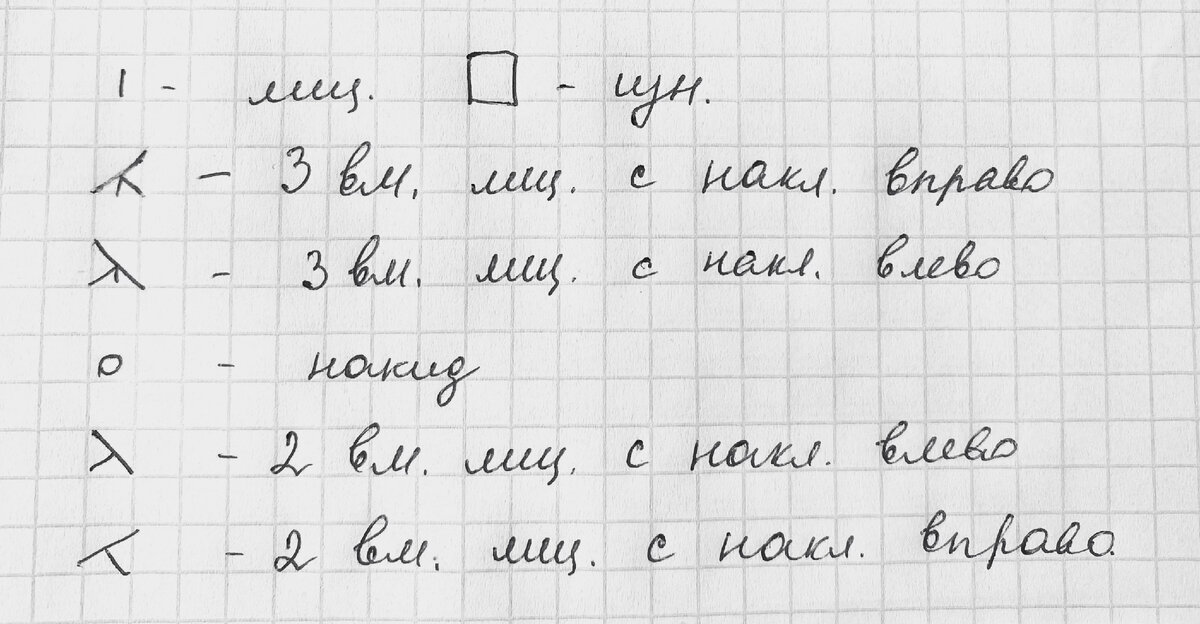 | - лиц. □ - изн.
⋌ - 3 вм. лиц. с накл. вправо
⋋ - 3 вм. лиц. с накл. влево
о - накид
λ - 2 вм. лиц. с накл. влево
⋌ - 2 вм. лиц. с накл. вправо.